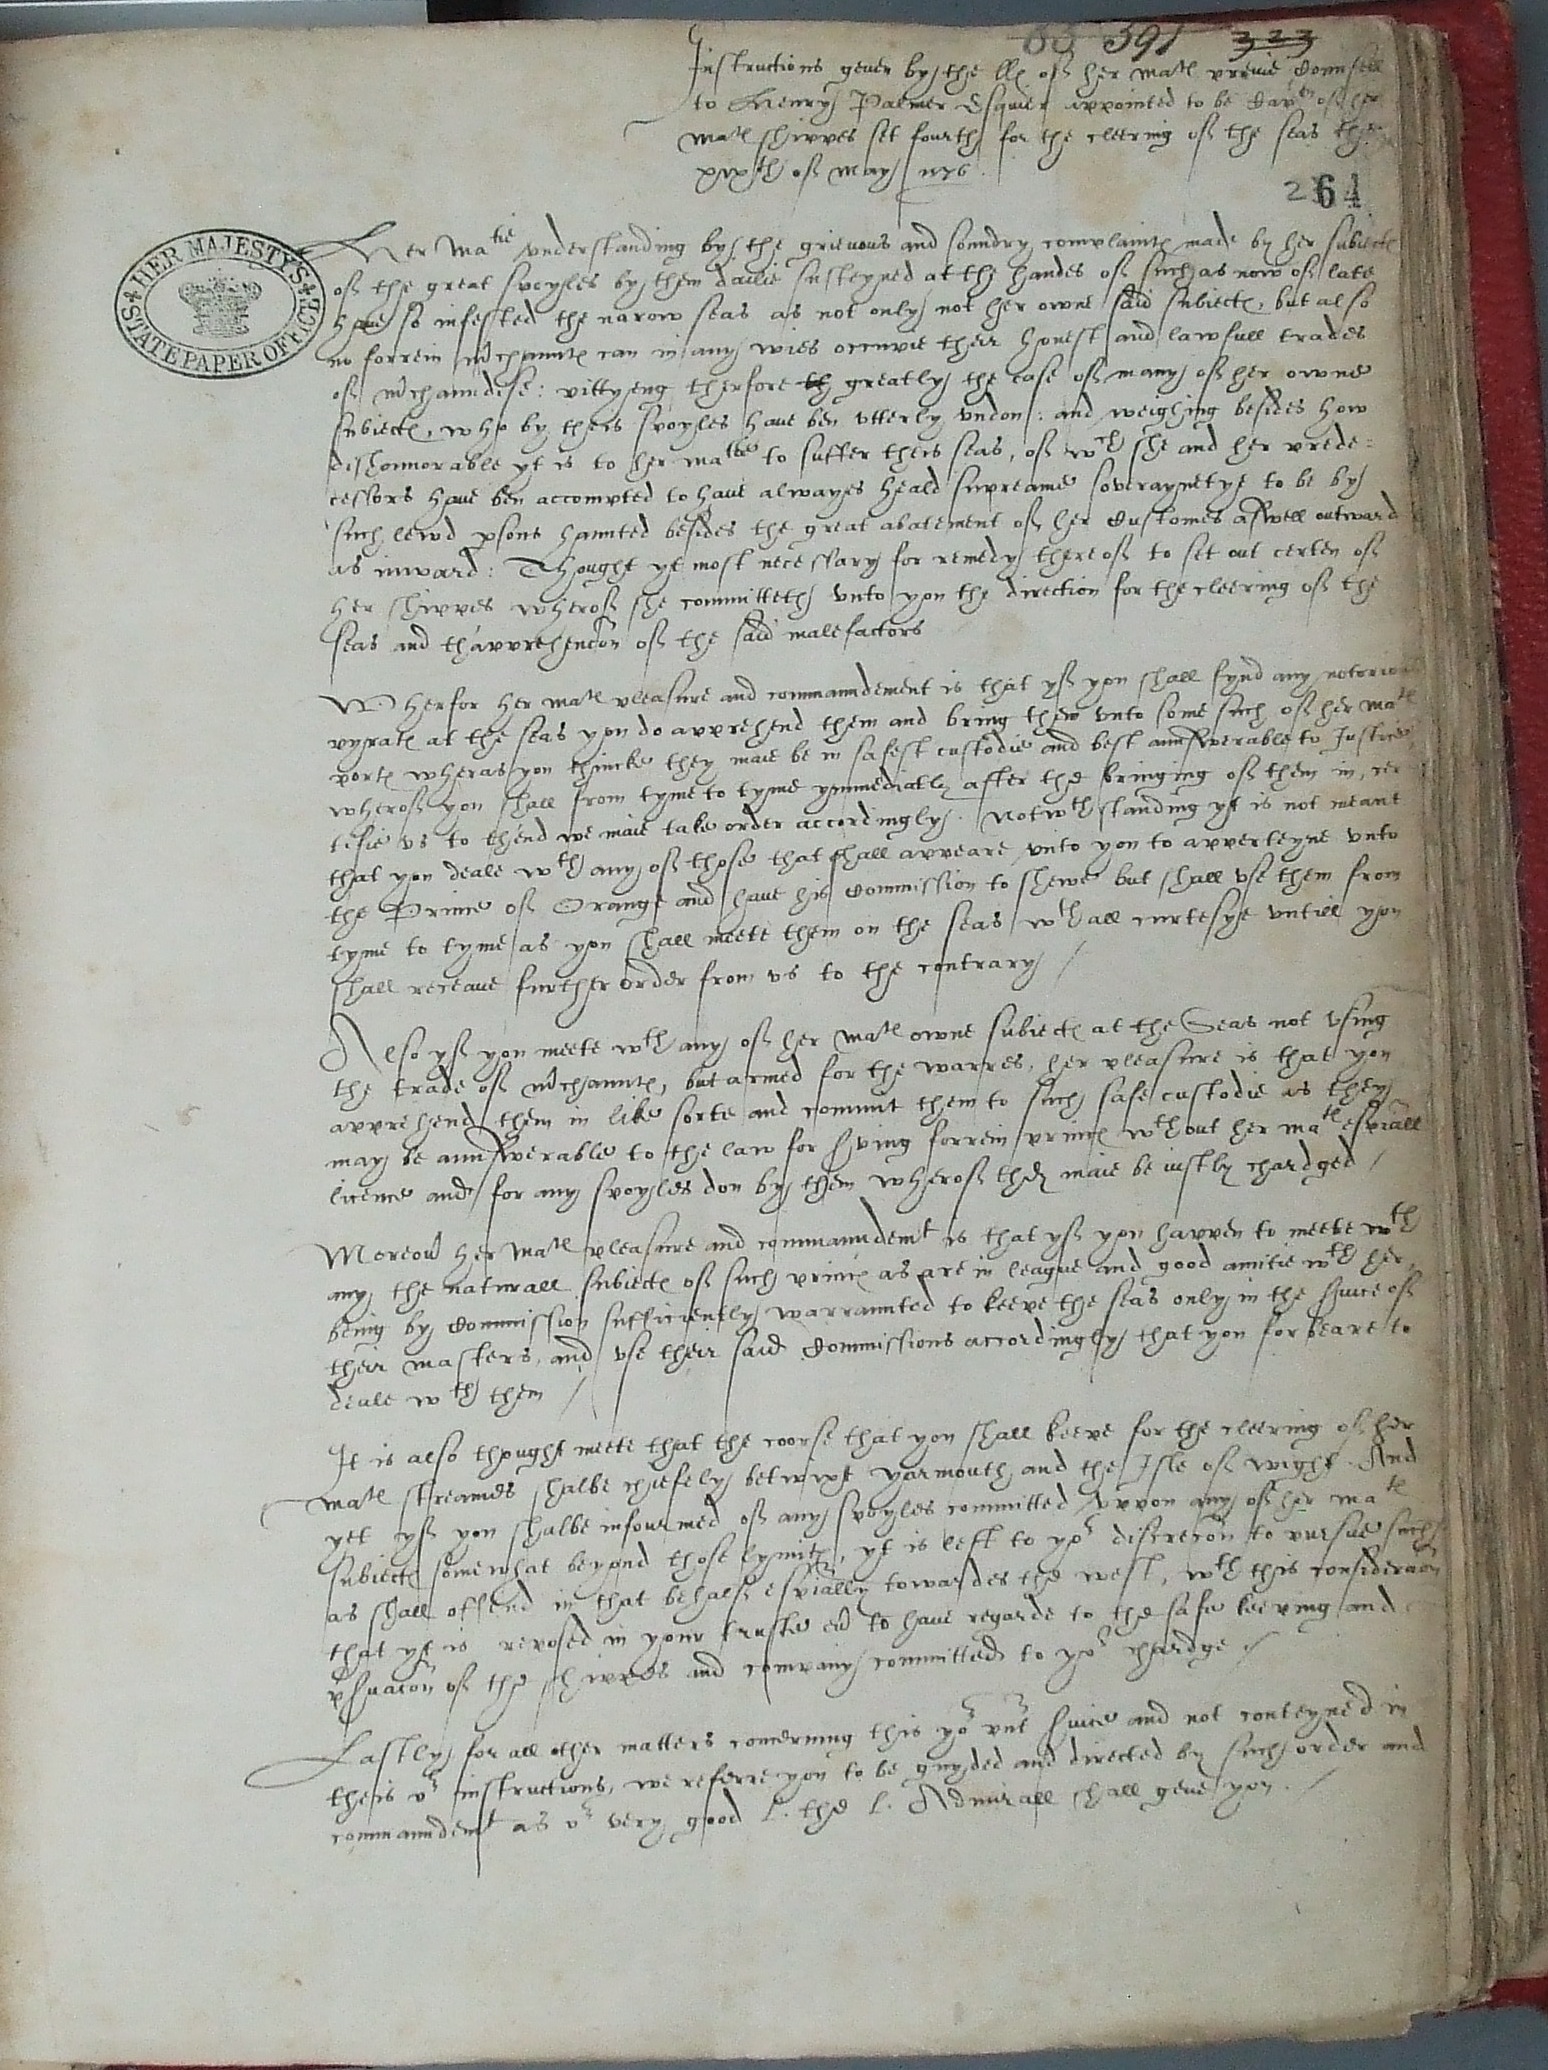 63 391 323
Instructions geven by the ll of her matꝭ privie Counsell
to Henry Palmer Esquier appointed to be Capten of her
matꝭ shippes set fourth for the cleering of the seas the
xixth of May 1576.
264
HER MAJESTY'S STATE PAPER OFFICE
Her Matie understanding by the grievous and soundry complaintꝭ made by her subiectꝭ
of the great spoyles by them dailie susteyned at the handes of such as now of late
have so infested the narow seas as not only not her owne said subiectꝭ, but also
no forrein mrchauntꝭ can in any wies occupie their honest and lawfull trades
of mrchaundise: pittyeng therfore th greatly the case of many of her owne
subiectꝭ, who by theis spoyles have ben utterly undon: and weighing besides how
dishonnorable yt is to her matie to suffer theis seas, of wch she and her prede=
cessors have ben accompted to have alwayes heald supreame soveraynetye to be by
such lewd psons haunted besides the great abatement of her Customes aswell outward
as inward: Thought yt most necessary for remedy thereof to set out certen of
her shippes wherof she committeth unto you the direction for the cleering of the
seas and thapprehencon of the said malefactors
Wherfor her matꝭ pleasure and commaundement is that yf you shall fynd any notorious
pyratꝭ at the seas you do apprehend them and bring them unto some such of her matꝭ
portꝭ wheras you thincke they maie be in safest custodie and best aunswerable to Justice,
wherof you shall from tyme to tyme ymmediatly after the bringing of them in, cer
tefie us to thend we maie take order accordingly. Notwthstanding yt is not meant
that you deale wth any of those that shall appeare unto you to apperteyne unto
the Prince of Orange and have his Commission to shewe but shall use them from
tyme to tyme as you shall meete them on the seas wth all curtesye untill you
shall receave further order from us to the contrary /
Also yf you meete wth any of her matꝭ owne subiectꝭ at the Seas not using
the trade of mrchauntꝭ, but armed for the warres, her pleasure is that you
apprehend them in like sorte and commit them to such safe custodie as they
may be aunswerable to the law for sving forrein princꝭ wthout her matꝭ espiall
licence and for any spoyles don by them wherof they maie be iustly chardged /
Moreovr her matꝭ pleasure and commaundemt is that yf you happen to meete wth
any the naturall subiectꝭ of such princꝭ as are in league and good amitie wth her,
being by Commission sufficiently warraunted to keepe the seas only in the svice of
their masters, and use their said Commissions accordingly that you forbeare to
deale wth them /
It is also thought meete that the coorse that you shall keepe for the cleering of her
matꝭ streames shalbe chiefely betwixt Yarmouth and the Isle of Wight. And
yet yf you shalbe infourmed of any spoyles committed uppon any of her matꝭ
subiectꝭ somewhat beyond those lymitꝭ, yt is left to yor discrecon to pursue such
as shall offend in that behalf espially towardes the west, wth this consideracon
that yt is reposed in your truste evr to have regarde to the safe keeping and
psvacon of the shippes and company committed to yor chardge /
Lastly for all other matters concerning this yor pnt svice and not conteyned in
theis or instructions, we referre you to be guyded and directed by such order and
commaundemt as or very good L. the L. Admirall shall geve you. /